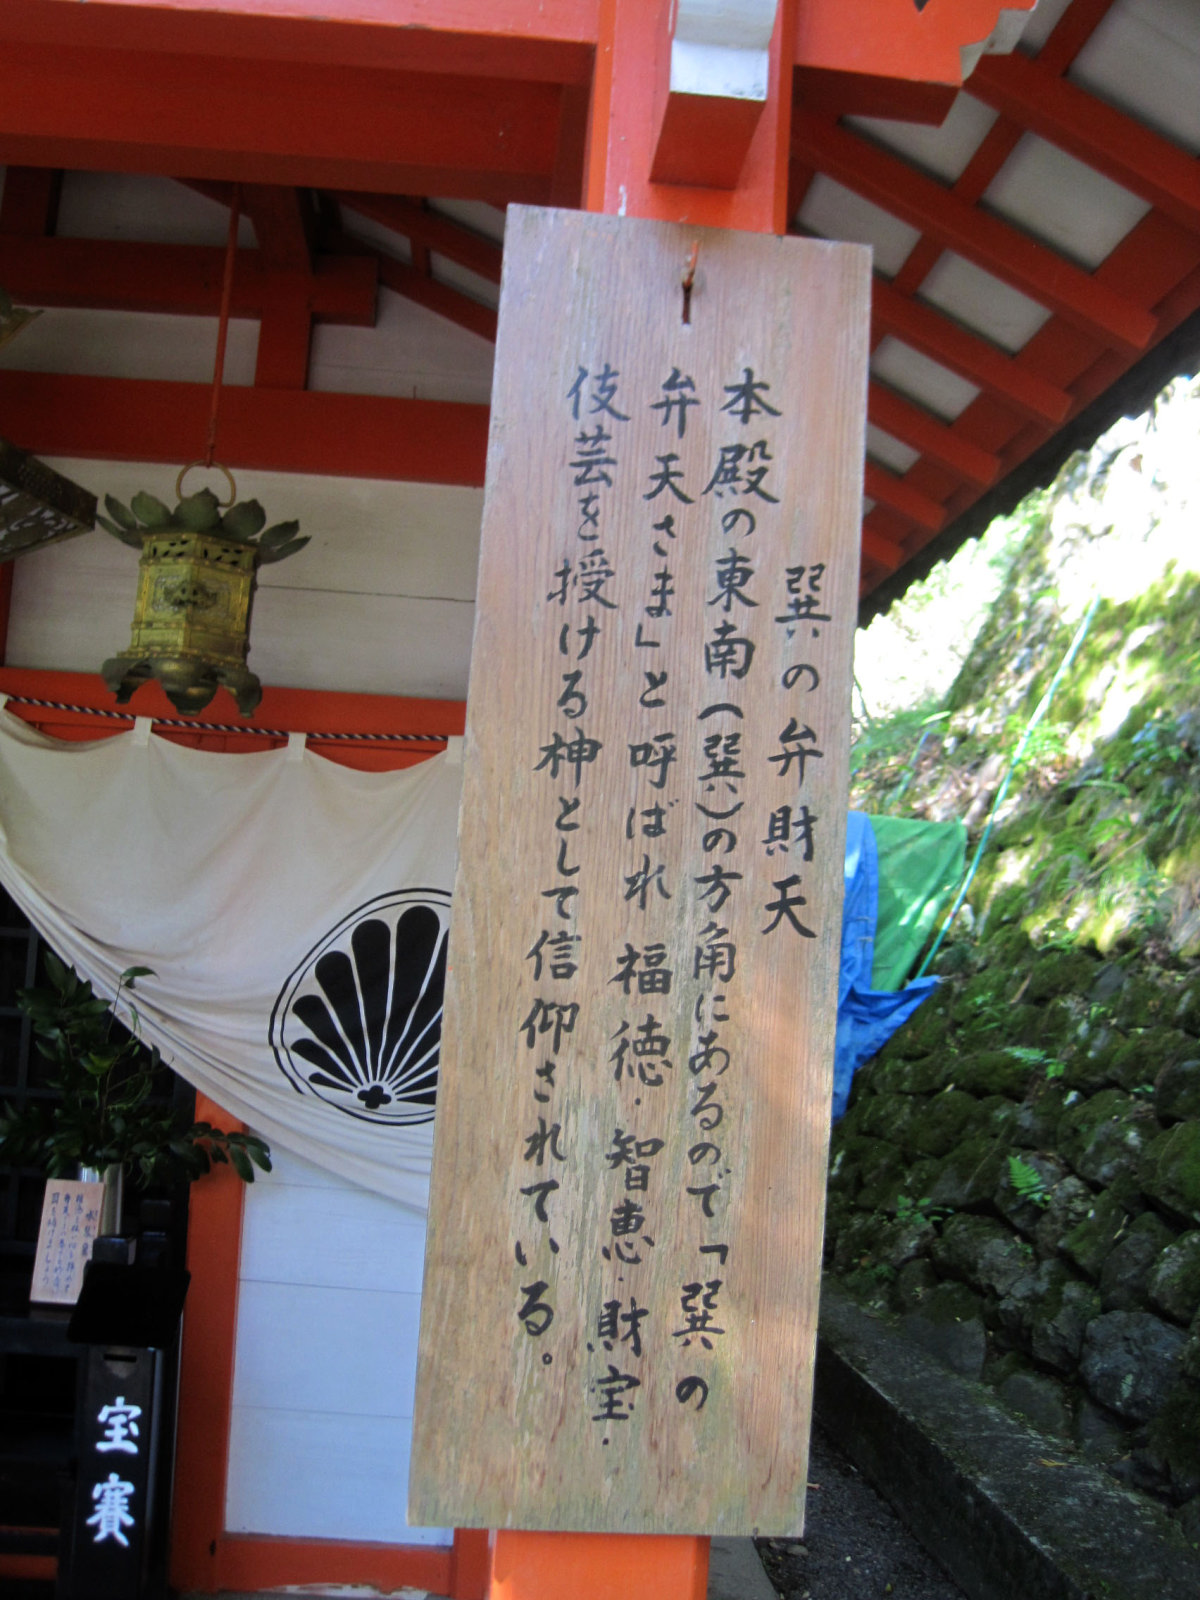 巽の弁財天
本殿の東南(巽)の方角にあるので「巽の
弁天さま」と呼ばれ福徳・智恵・財宝・
伎芸を授ける神として信仰されている。
賽宝